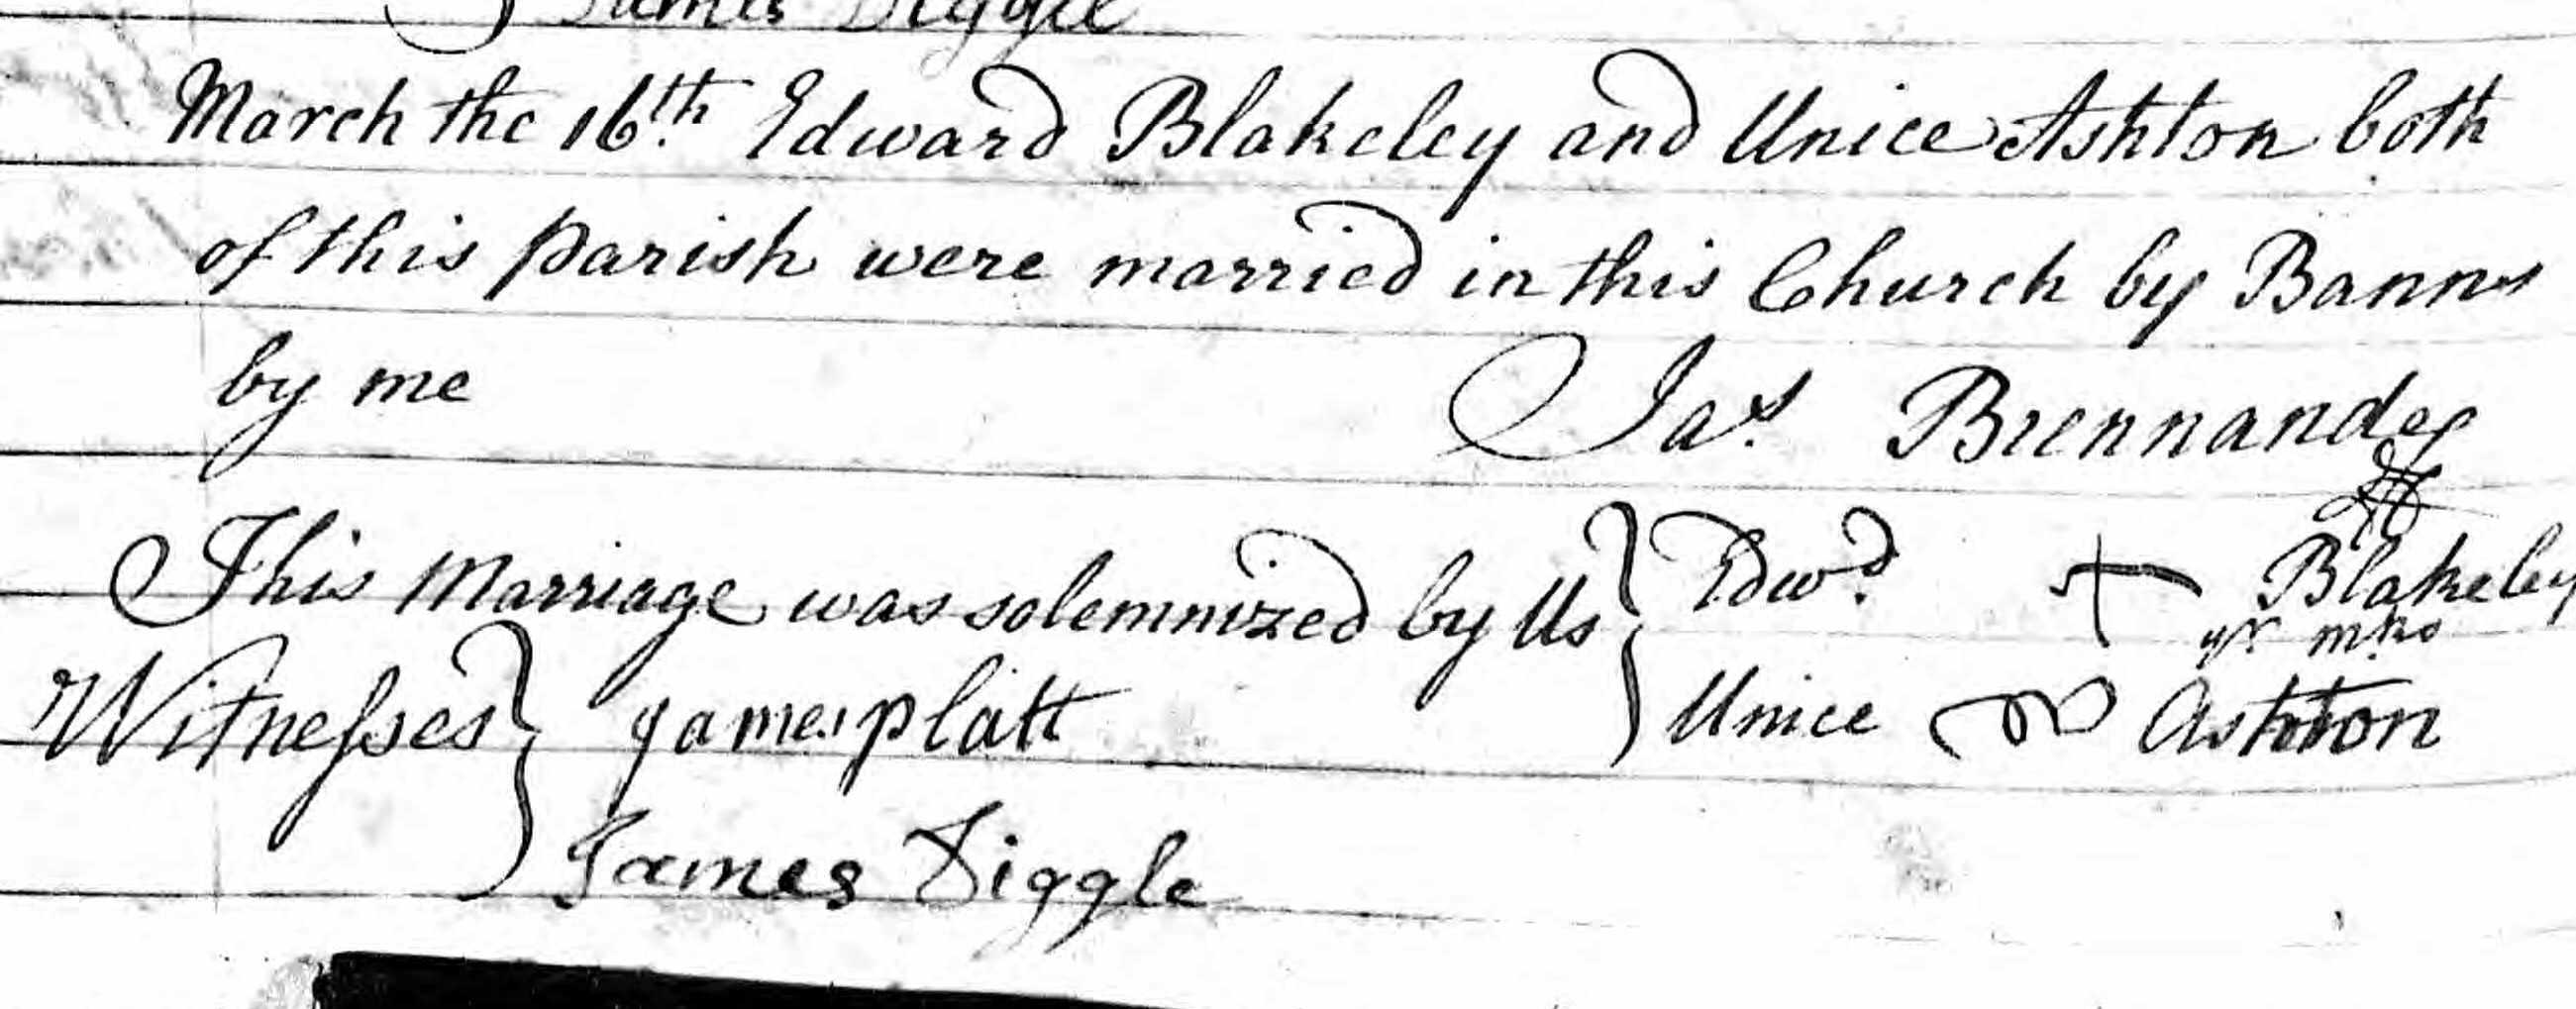 James Diggle
March the 16th Edward Blakeley and Unice Ashton both
of this parish were married in this Church by Banns
by me Jas Brennand
This Marriage was solemnized by Us } Edwd + Blakeley
yr mks
Witnesses } James platt Unice Ashton
James Diggle